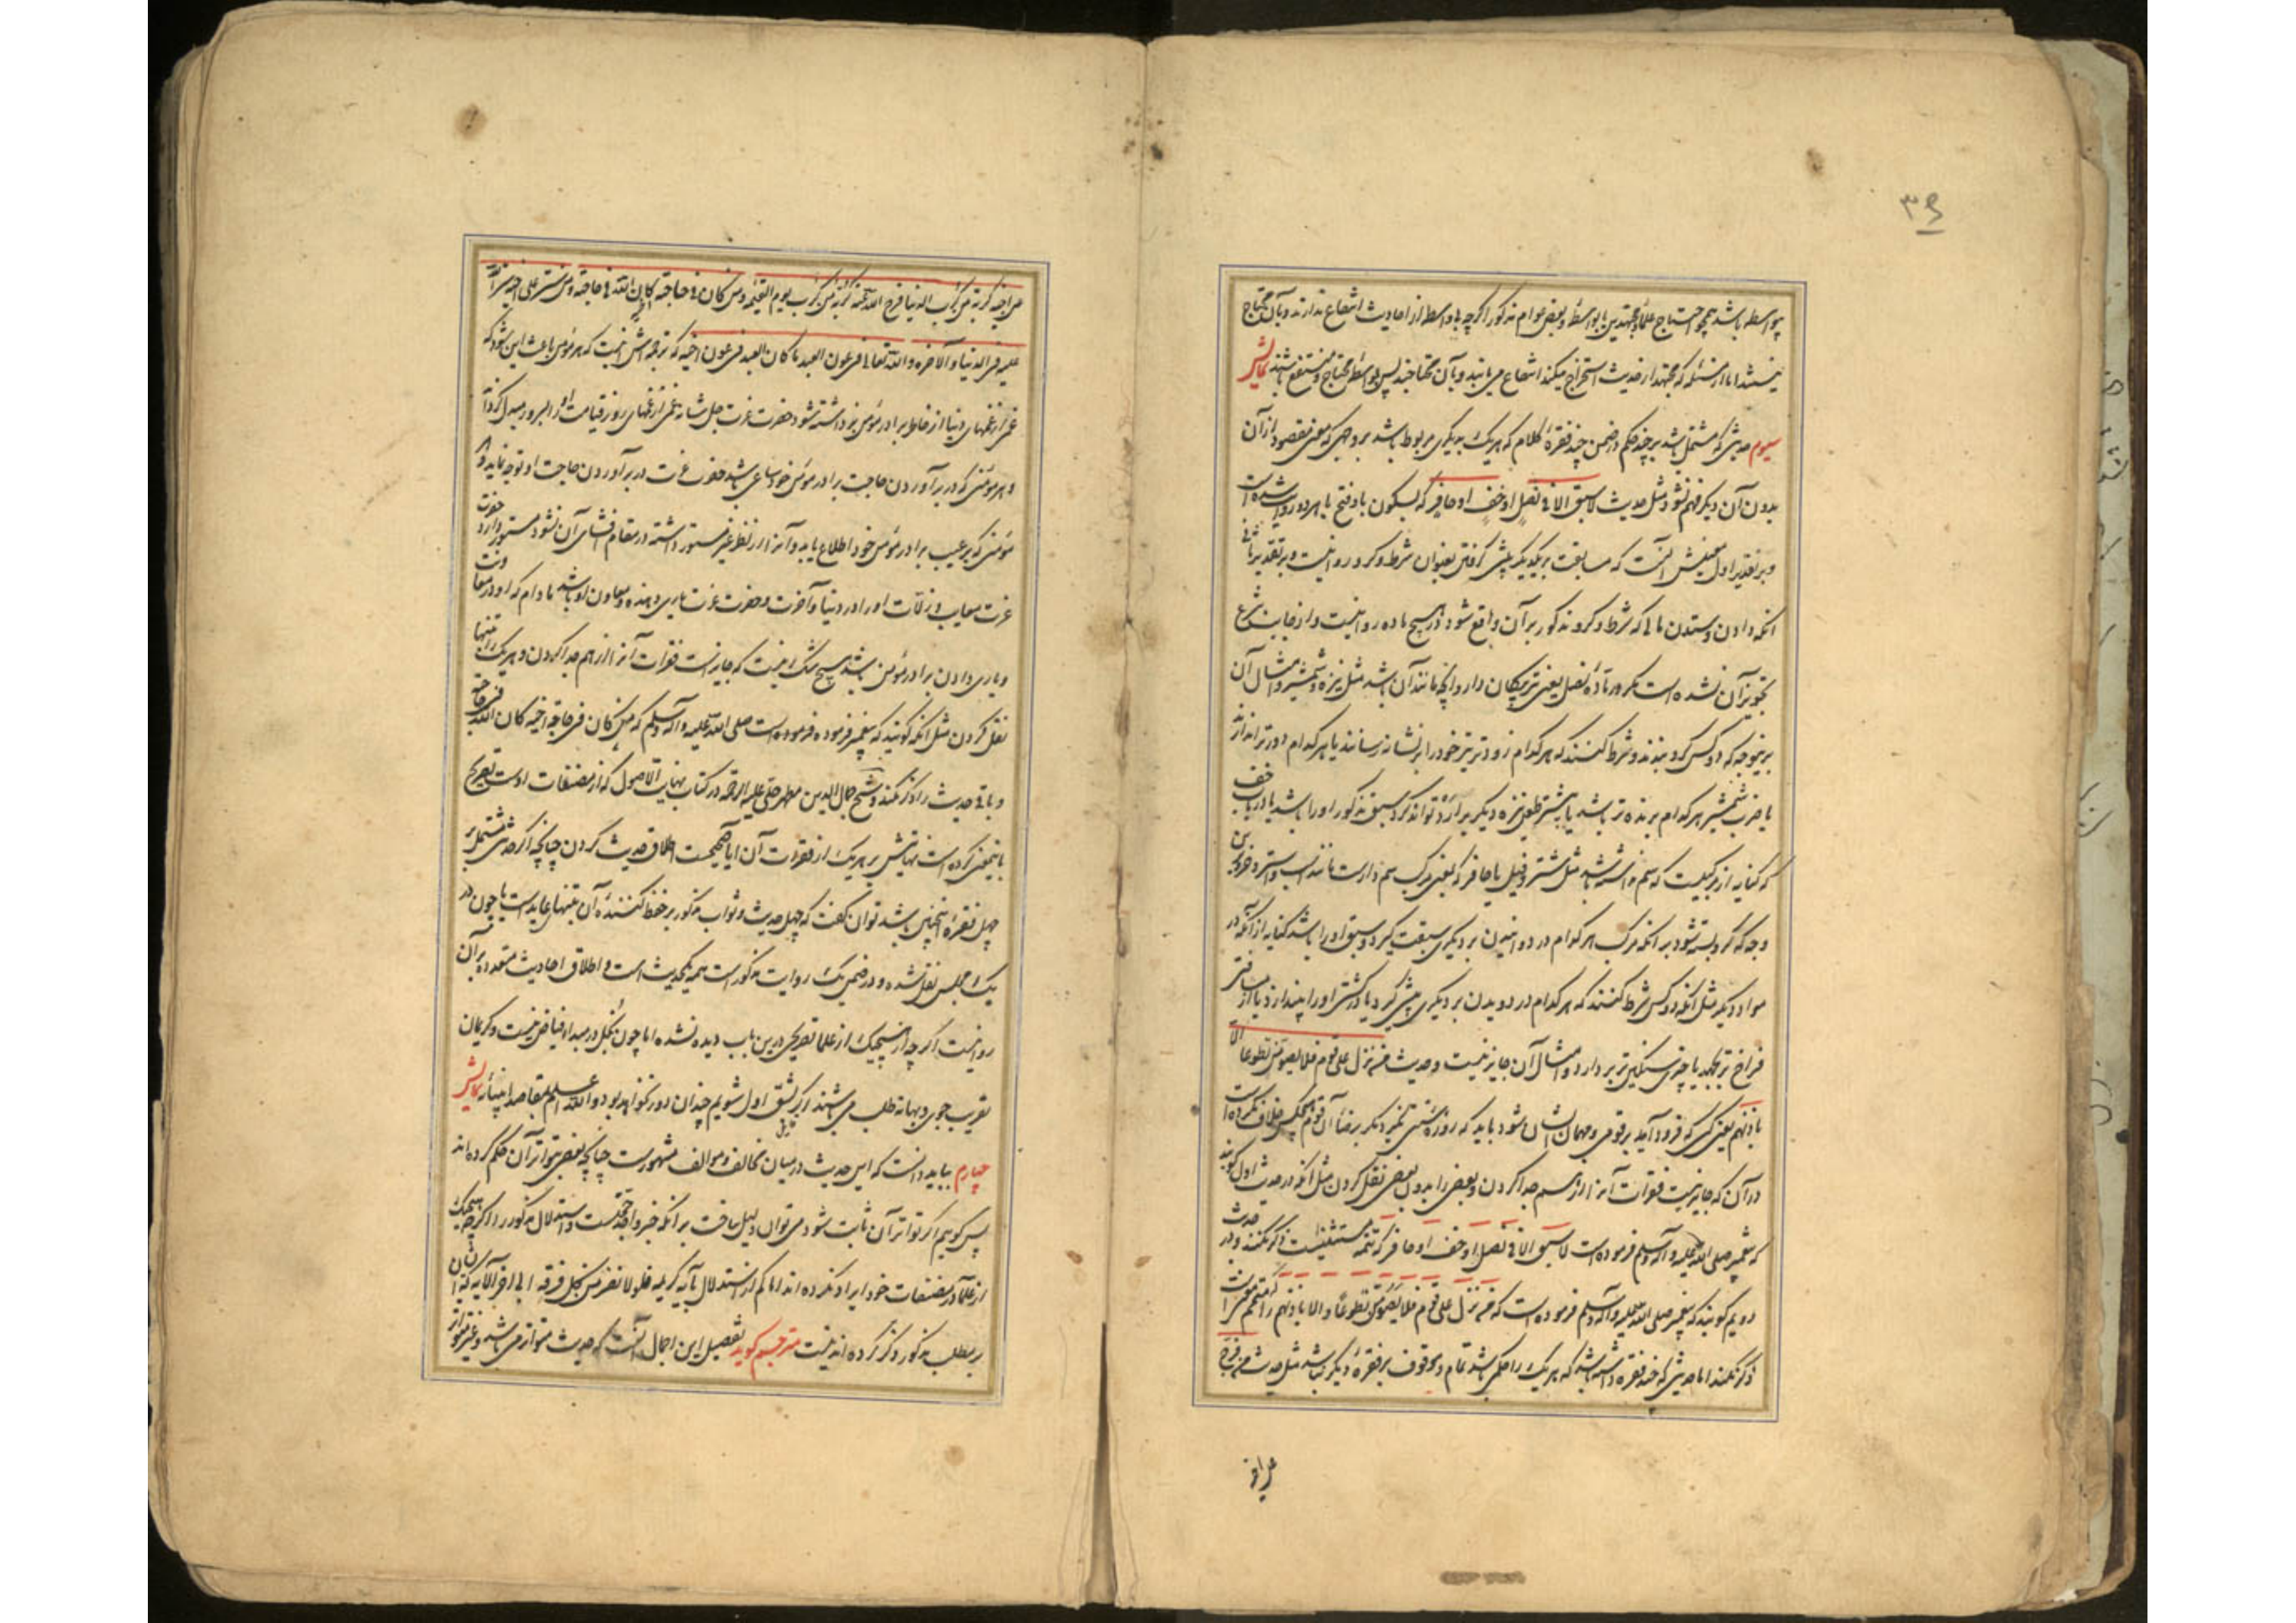 ۳۶
بواسطه باشد همچو احتیاج علما و مجتهدین یا بواسطه و بعضی عوام مذکور اگرچه بلاواسطه از احادیث انتفاع ندارند و بآن محتاج
نیستند اما از مسئله که مجتهد از حدیث استخراج میکند انتفاع می یابند و بآن محتاجند پس بواسطه محتاج و منتفع باشند نمایش
سیوم حدیثی که مشتمل باشد بر چند حکم در ضمن چند فقره کلام که هر یک بدیگری مربوط باشد بر وجهی که معنی مقصود از آن
بدون آن دیگر فهم نشود مثل حدیث لا سبق الا فی نصل او خف او حافر که بسکون با و فتح با هر دو روایت شده است
و بر تقدیر اول معنیش آنست که مسابقت بر یکدیگر پیش گرفتن بعنوان شرط و گرو روا نیست و بر تقدیر ثانی
آنکه دادن و ستدن مالی که شرط و گرو مذکور بر آن واقع شود در هیچ ماده روا نیست و از جانب شرع
تجویز آن نشده است مگر در ماده نصل یعنی تیر پیکان دار و آنچه مانند آن باشد مثل نیزه و شمشیر و امثال آن
برینوجه که دو کس گرو بندند و شرط کنند که هر کدام زودتر تیر خود را بر نشانه رسانند یا هر کدام دورتر اندازند
یا ضرب شمشیر هر کدام برنده تر باشد یا بیشتر طعن نیزه دیگر بر او رد تواند کرد سبق مذکور او را باشد یا در باب خف
که کنایه از مرکبیست که سم نداشته باشد مثل شتر و فیل یا حافر که یعنی مرکب سم دارست مانند اسب و استر و خر باین
وجه که گرو بسته شود بر آنکه مرکب هر کدام در دوانیدن بر دیگری سبقت گیرد و سبق او را باشد کنایه از آنکه در
مواد دیگر مثل آنکه دو کس شرط کنند که هر کدام در دویدن بر دیگری پیشی گیرد یا در کشتی او را بیندازد یا از مسافتی
فراخ تر بجهد یا چیزی سنگین تر بردارد و امثال آن جایز نیست و حدیث من نزل علی قوم فلا یصومن تطوعا الا
باذنهم یعنی کسی که فرود آید بر قومی و مهمان ایشان شود باید که روزه سنتی نگیرد مگر برضا آن قوم هیچکس خلاف نکرده است
در آن که جایز نیست فقرات آنرا از هم جدا کردن و بعضی را بدون بعضی نقل کردن مثل آنکه در حدیث اول گویند
که پیغمبر صلی الله علیه و آله و سلم فرموده است لا سبق الا فی نصل او خف او حافر که تتمه مستثنیست ذکر نکنند و در حدیث
دویم گویند که پیغمبر صلی الله علیه و آله و سلم فرموده است که من نزل علی قوم فلا یصومن تطوعا و الا باذنهم را که متمم است
ذکر نکنند اما حدیثی که چند فقره داشته باشد که هر یک را حکمی باشد تمام و موقوف بر فقره دیگر نباشد مثل حدیث من فرج
عن اخیه
عن اخیه کربة من کرب الدنیا فرج الله عنه کربة من کرب یوم القیمه و من کان فی حاجة اخیه کان الله فی حاجته و من ستر علی اخیه ستر الله
علیه فی الدنیا و الاخره و الله تعالی فی عون العبد ما کان العبد فی عون اخیه که ترجمه اش اینست که هر مؤمن باعث این شود که
غمی از غمهای دنیا از خاطر برادر مؤمن برداشته شود حضرت عزت جل شانه غمی از غمهای روز قیامت او را بسرور مبدل گرداند
و هر مؤمنی که در برآوردن حاجت برادر مؤمن خود ساعی باشد حضرت عزت در برآوردن حاجت او توجه نماید و هر
مؤمنی که بر عیب برادر مؤمن خود اطلاع یابد و آنرا از نظر غیر مستور داشته در مقام افشای آن نشود مستور دارد حضرت
عزت معایب و زلات او را در دنیا و آخرت و حضرت عزت یاری دهنده و معاون او باشد مادام که او در معاونت
و یاری دادن برادر مؤمن باشد هیچ شک نیست که جایز است فقرات آنرا از هم جدا کردن و هر یک را تنها
نقل کردن مثل آنکه گویند که پیغمبر فرموده است صلی الله علیه و آله و سلم که من کان فی حاجة اخیه کان الله فی حاجته
و باقی حدیث را ذکر نکنند و شیخ جمال الدین مطهر حلی علیه الرحمه در کتاب نهایت الاصول که از مصنفات اوست تصریح
باینمعنی کرده است نهایتش بر هر یک از فقرات آن آیا صحیحست اطلاق حدیث کردن چنانچه اگر حدیثی مشتمل بر
چهل فقره اینچنین باشد توان گفت که چهل حدیث و ثواب مذکور بر حفظ کننده آن تنها عاید است یا چون در
یک مجلس نقل شده و در ضمن یک روایت مذکور است همه یکحدیث است و اطلاق احادیث متعدده بر آن
روا نیست اگرچه از هیچیک از علما تصریحی درین باب دیده نشده اما چون بخل در مبدا فیاض نیست و کریمان
تقریب جوی و بهانه طلب می باشند اگر بشق اول شویم چندان دور نخواهد بود و الله اعلم بمقاصد انبیائه نمایش
چهارم بباید دانست که این حدیث در میان مخالف و موالف مشهورست چنانچه بعضی بتواتر آن حکم کرده اند
پس گوییم اگر تواتر آن ثابت شود می توان دلیل ساخت بر آنکه خبر واحد حجتست و استدلال مذکور را اگرچه هیچیک
از علما در مصنفات خود ایراد نکرده اند اما کم از استدلال بآیه کریمه فلولا نفر من کل فرقه الی آخر الآیه که ایشان
بر مطلب مذکور ذکر کرده اند نیست مترجم گوید تفصیل این اجمال آنست که حدیث متواتر می باشد و غیر متواتر